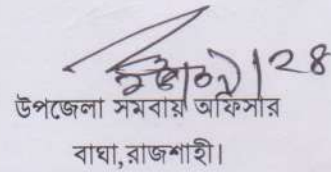 উপজেলা সমবায় অফিসার
বাঘা,রাজশাহী।